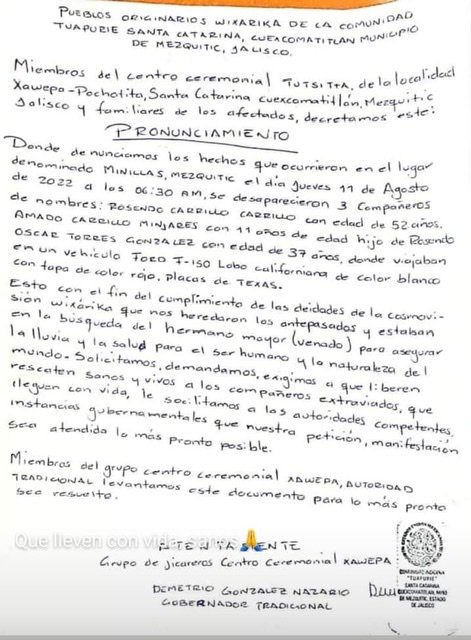 PUEBLOS ORIGINARIOS WIXARIKA DE LA COMUNIDAD
TUAPURIE SANTA CATARINA, CUEXCOMATITLAN MUNICIPIO
DE MEZQUITIC, JALISCO.
Miembros del centro ceremonial TUTSITTA, de la localidad
Xawepa-Pochotita, Santa Catarina Cuexcomatitlán, Mezquitic
Jalisco y familiares de los afectados, decretamos este:
PRONUNCIAMIENTO
Donde denunciamos los hechos que ocurrieron en el lugar
denominado MINILLAS, MEZQUITIC el día Jueves 11 de Agosto
de 2022 a las 06:30 AM, se desaparecieron 3 compañeros
de nombres: ROSENDO CARRILLO CARRILLO con edad de 52 años.
AMADO CARRILLO MINJARES con 11 años de edad hijo de Rosendo
OSCAR TORRES GONZALEZ con edad de 37 años, donde viajaban
en un vehículo FORD F-150 Lobo californiana de color blanco
con tapa de color rojo, placas de TEXAS.
Esto con el fin del cumplimiento de las deidades de la cosmovi-
sión wixárika que nos heredaron los antepasados y estaban
en la búsqueda del hermano mayor (venado) para asegurar
la lluvia y la salud para el ser humano y la naturaleza del
mundo. Solicitamos, demandamos, exigimos a que liberen
rescaten sanos y vivos a los compañeros extraviados, que
lleguen con vida, le socilitamos a las autoridades competentes,
instancias gubernamentales que nuestra petición, manifestación
sea atendida lo más pronto posible.
Miembros del grupo centro ceremonial XAWEPA, AUTORIDAD
TRADICIONAL levantamos este documento para lo más pronto
sea resuelto.
Que lleven con vida, sanos 🙏
ATENTAMENTE
Grupo de jicareros Centro Ceremonial XAWEPA
DEMETRIO GONZALEZ NAZARIO
GOBERNADOR TRADICIONAL
"TUAPURIE"
SANTA CATARINA
CUEXCOMATITLAN, MPIO
DE MEZQUITIC, ESTADO
DE JALISCO